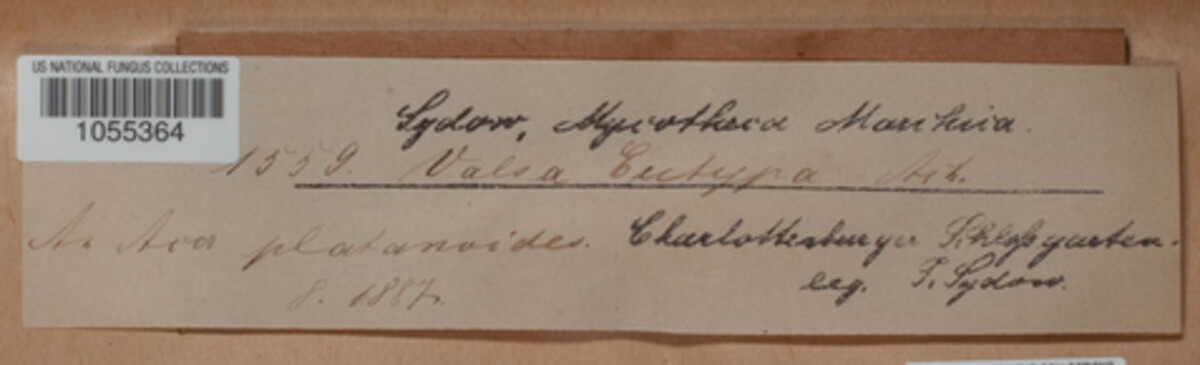 US NATIONAL FUNGUS COLLECTIONS
1055364
Sydow, Mycotheca Marchica.
1559. Valsa Eutypa Ach.
An Acer platanoides. Charlottenburger Schloßgarten.
8. 1887. leg. P. Sydow.